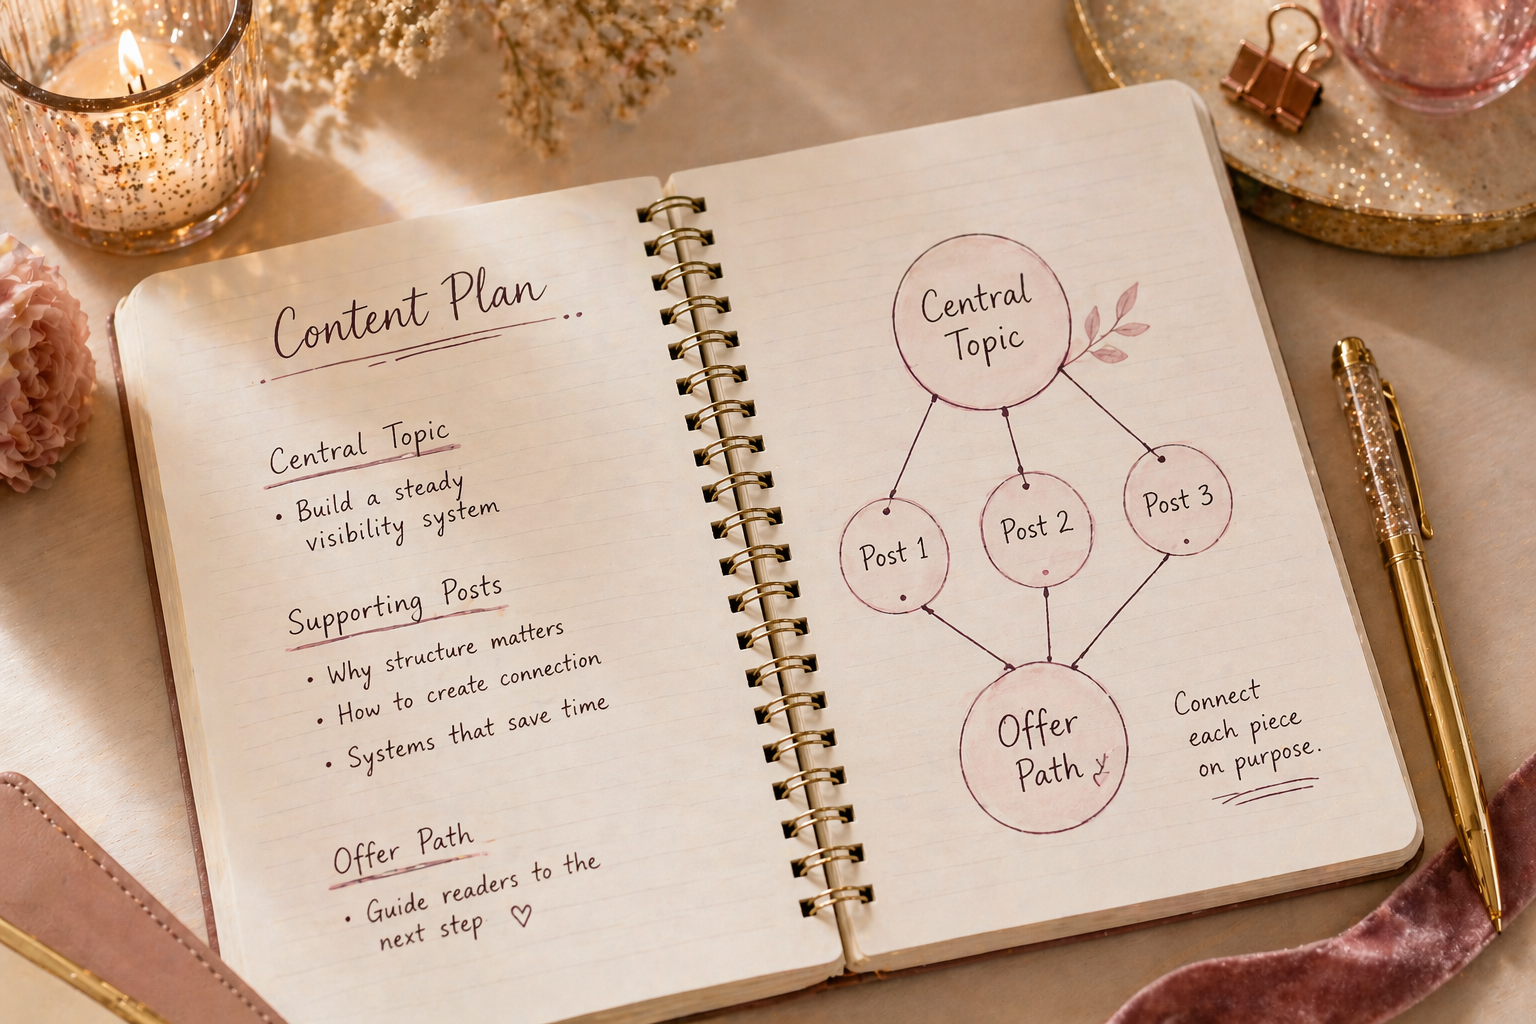 Content Plan
Central Topic
• Build a steady
visibility system
Supporting Posts
• Why structure matters
• How to create connection
• Systems that save time
Offer Path
• Guide readers to the
next step ♡
Central
Topic
Post 1
Post 2
Post 3
Offer
Path
Connect
each piece
on purpose.